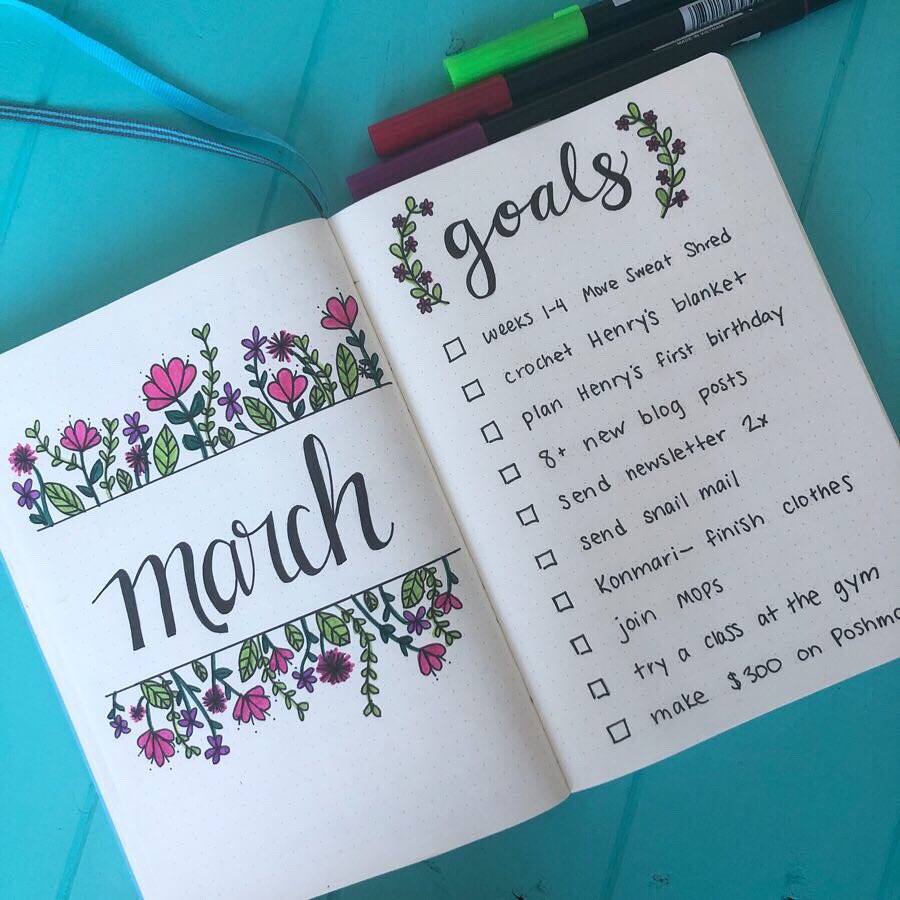 march
goals
weeks 1-4 Move Sweat Shred
crochet Henry's blanket
plan Henry's first birthday
8+ new blog posts
send newsletter 2x
send snail mail
Konmari- finish clothes
join MOPS
try a class at the gym
make $300 on Poshma
MADE IN VIETNAM